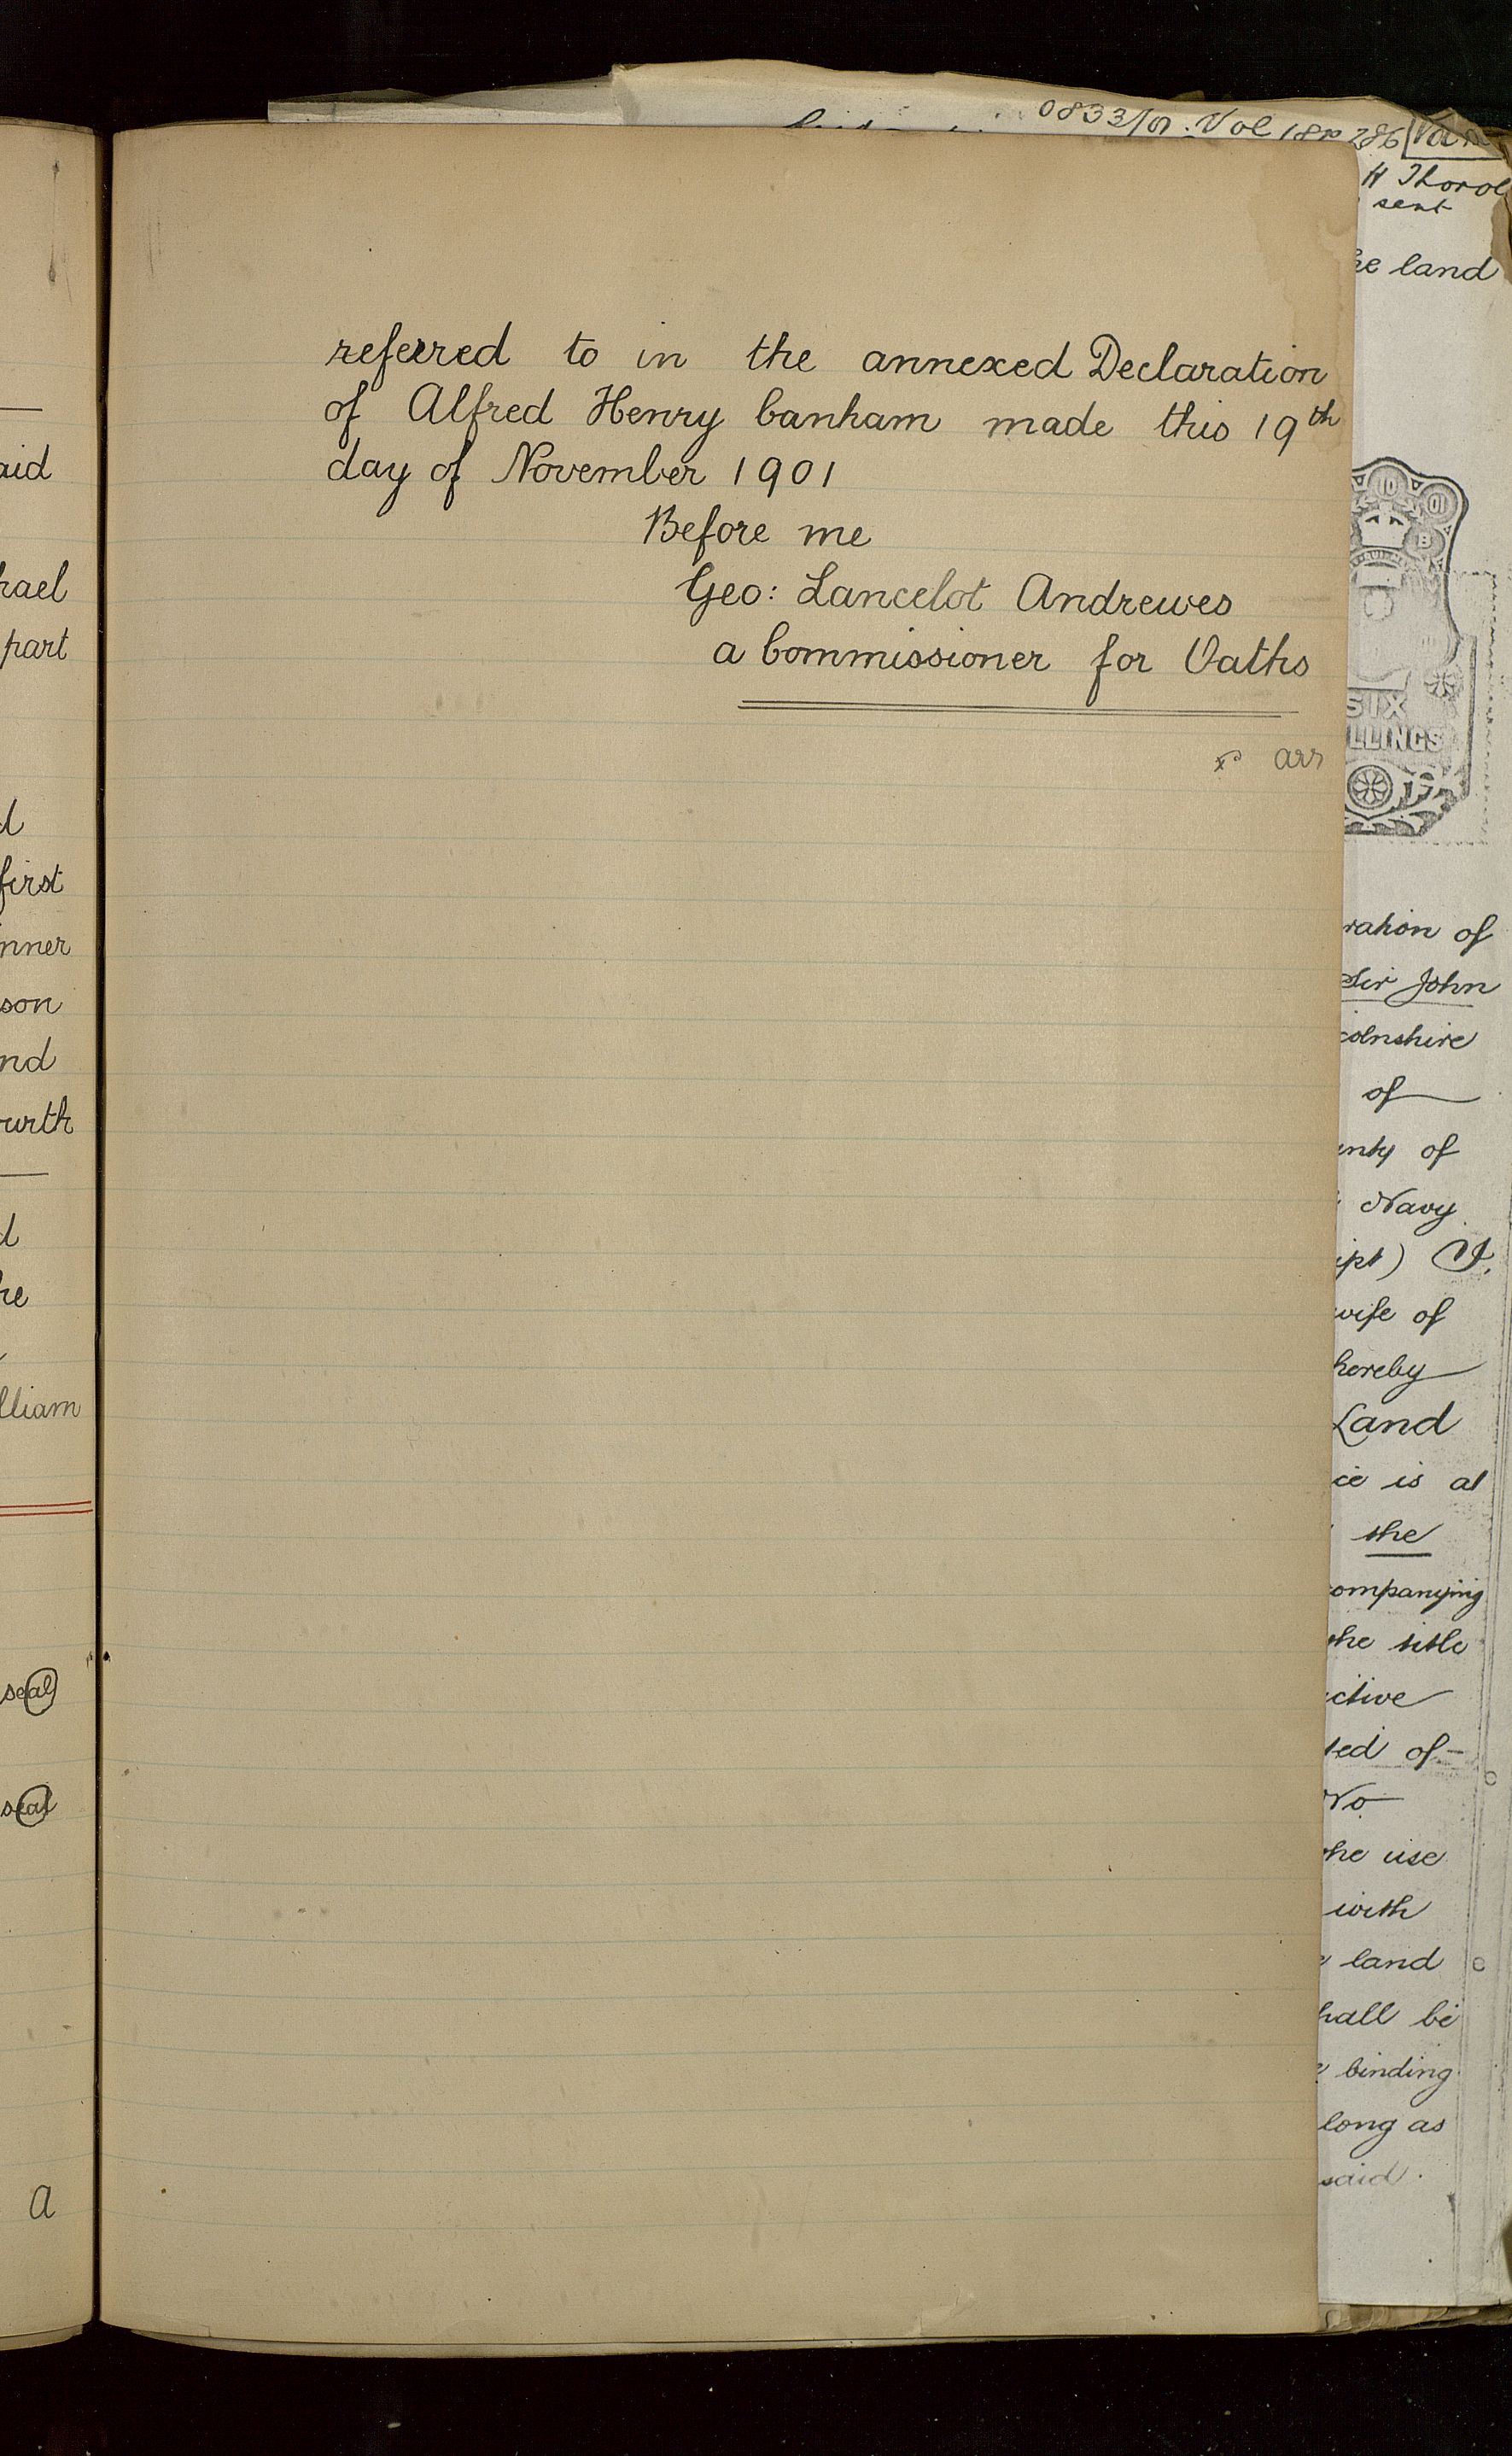 aid
hael
part
d
first
nner
son
nd
urth
d
he
lliam
seal
seal
a
referred to in the annexed Declaration
of Alfred Henry Canham made this 19th
day of November 1901
Before me
Geo: Lancelot Andrewes
a Commissioner for Oaths
0833/01. Vol 18 p 286
H Thorol
sent
he land
10 01
B
SIX
LLINGS
ration of
Sir John
colnshire
of
unty of
Navy
ipt) I.
wife of
hereby
Land
ice is at
the
companying
the title
ctive
ted of
No
the use
with
land
hall be
binding
long as
said.